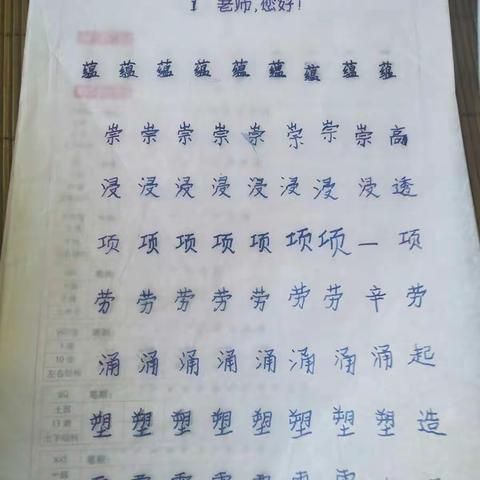 1 老师,您好!
蕴 蕴 蕴 蕴 蕴 蕴 蕴 蕴 蕴
崇 崇 崇 崇 崇 崇 崇 崇 高
浸 浸 浸 浸 浸 浸 浸 浸 透
项 项 项 项 项 项 项 一 项
劳 劳 劳 劳 劳 劳 劳 辛 劳
涌 涌 涌 涌 涌 涌 涌 涌 起
塑 塑 塑 塑 塑 塑 塑 塑 造